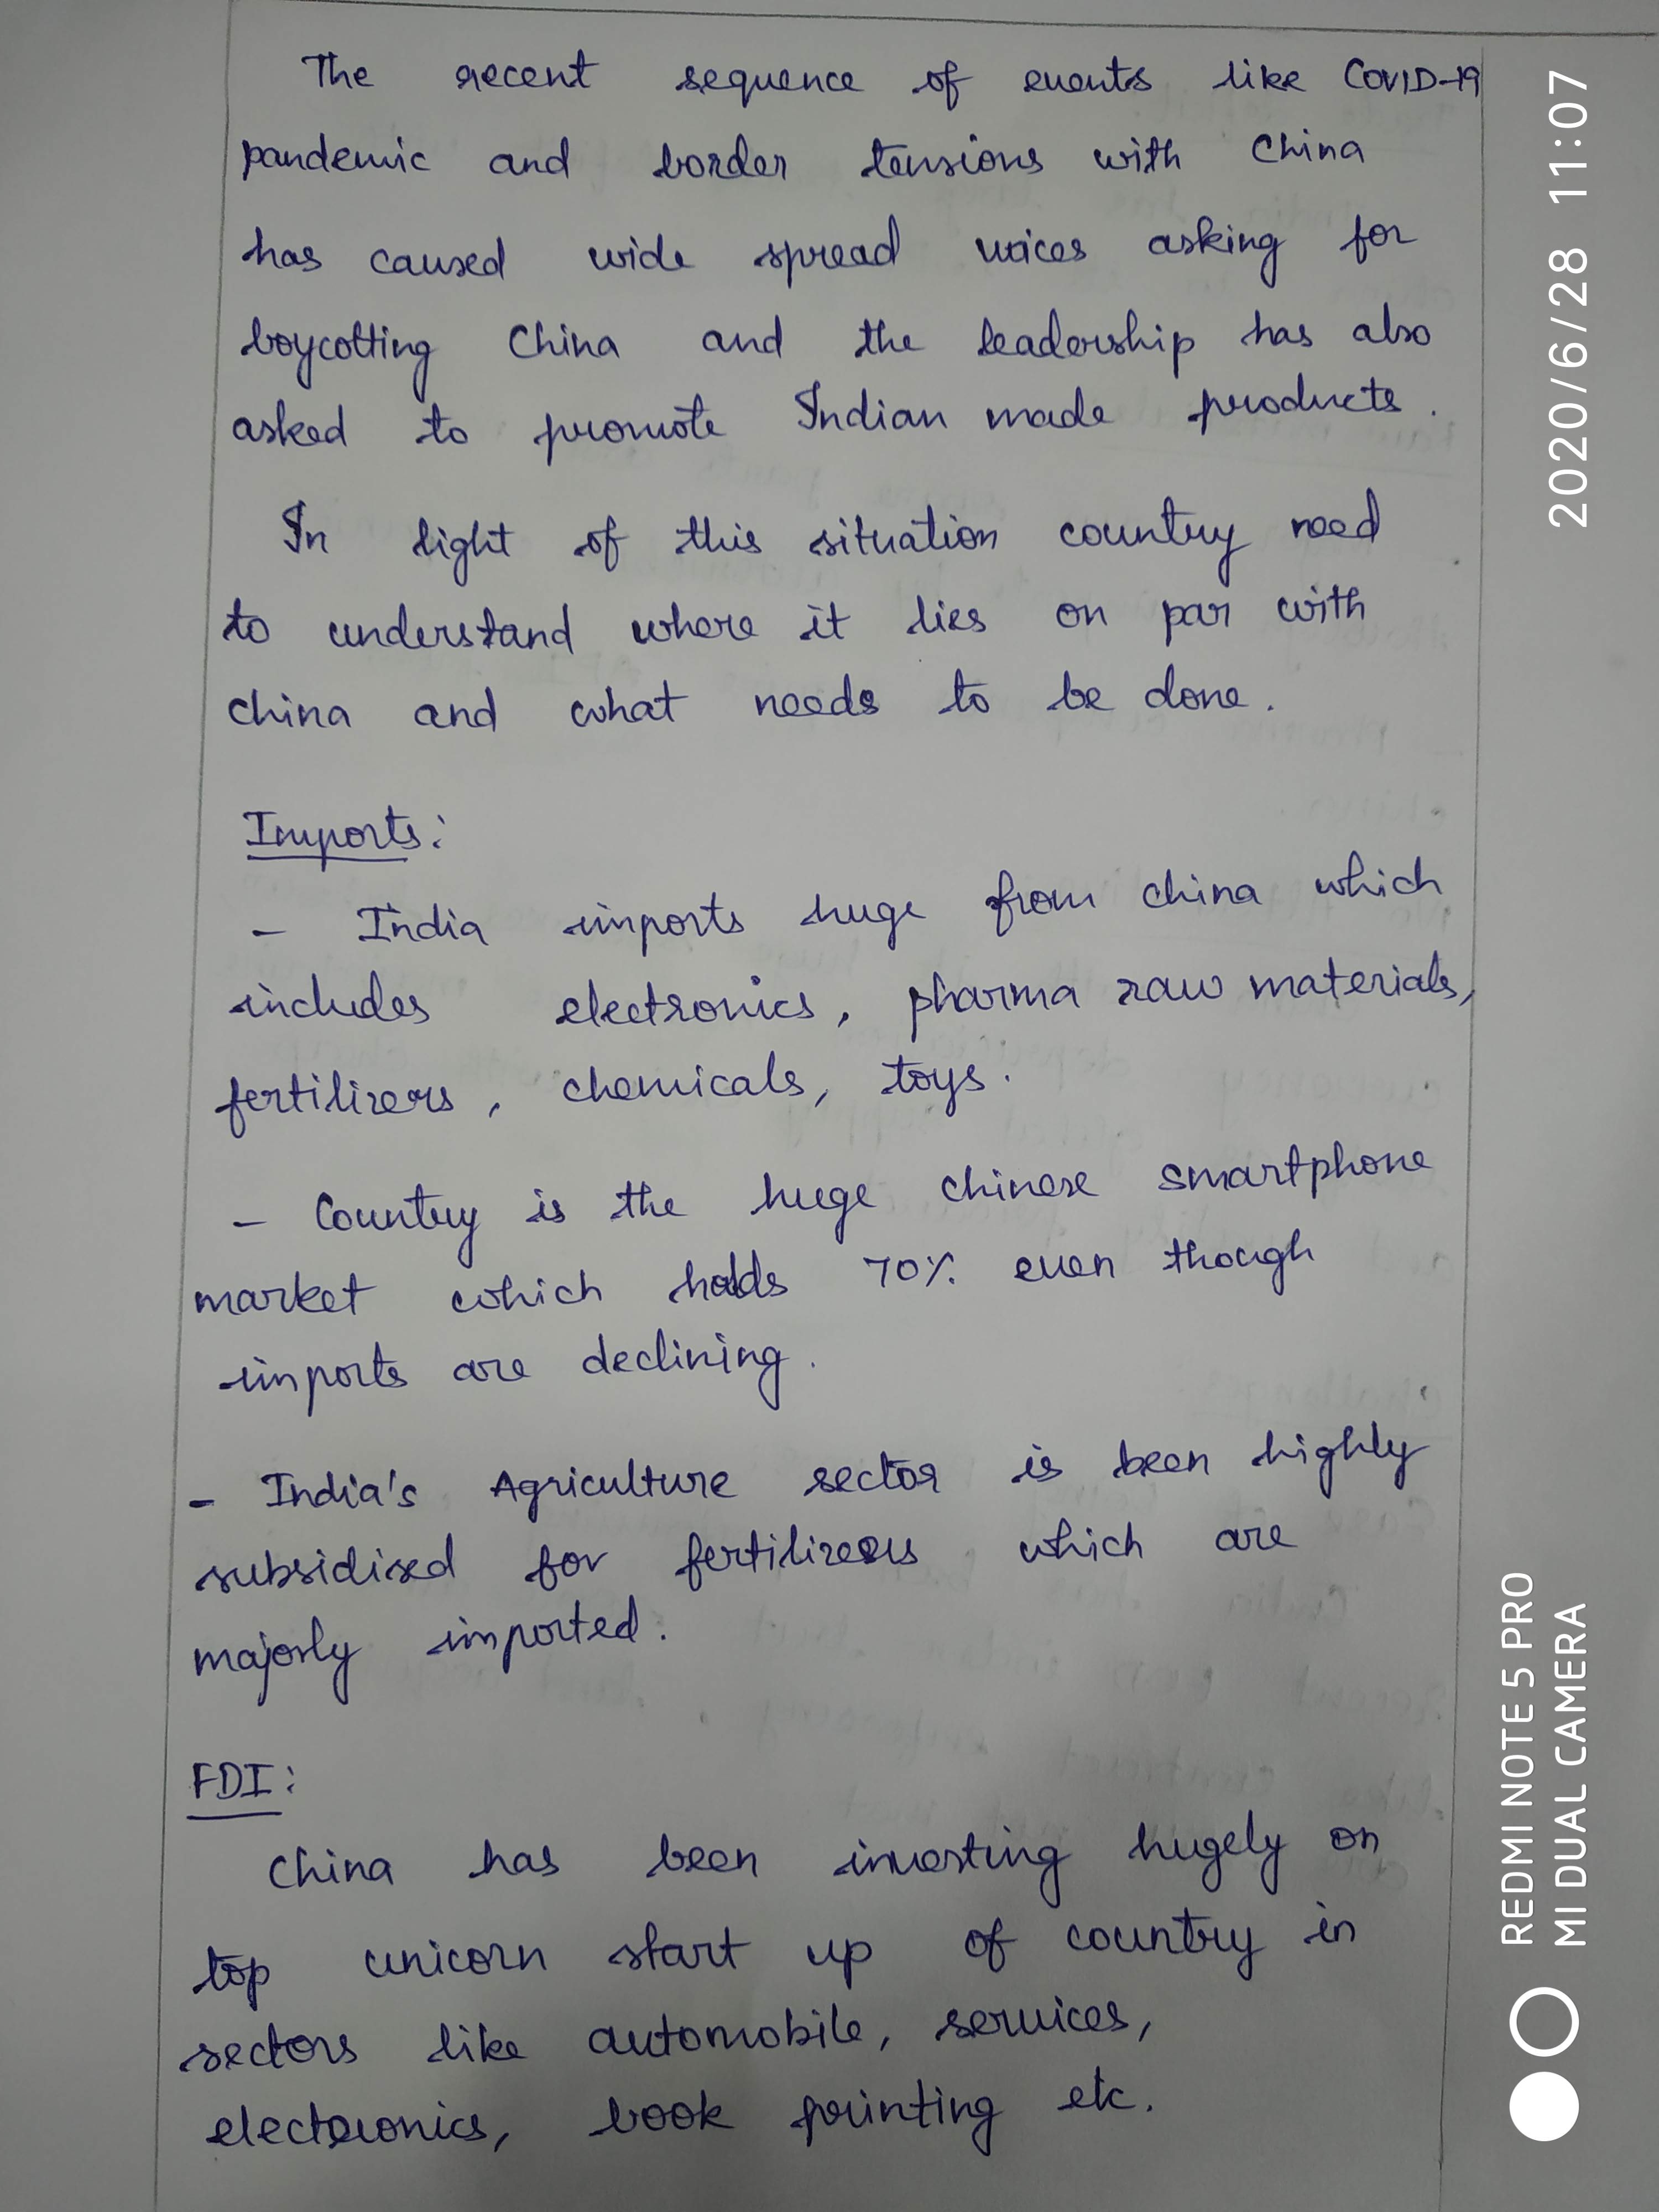 The recent sequence of events like COVID-19
pandemic and border tensions with China
has caused wide spread voices asking for
boycotting China and the leadership has also
asked to promote Indian made products.
In light of this situation country need
to understand where it lies on par with
china and what needs to be done.
Imports:
- India imports huge from china which
includes electronics, pharma raw materials,
fertilizers, chemicals, toys.
- Country is the huge chinese smartphone
market which holds 70% even though
imports are declining.
- India's Agriculture sector is been highly
subsidised for fertilizers which are
majorly imported.
FDI:
China has been investing hugely on
top unicorn start up of country in
sectors like automobile, services,
electronics, book printing etc.
2020/6/28 11:07
REDMI NOTE 5 PRO
MI DUAL CAMERA